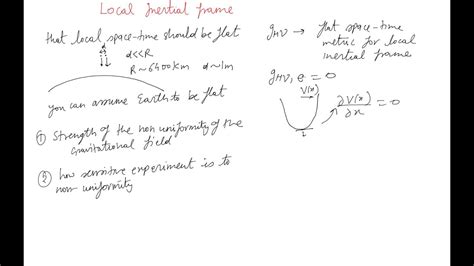 Local Inertial frame
that local space-time should be flat
d<<R
R~6400km d~1m
you can assume Earth to be flat
① Strength of the non uniformity of the
gravitational field
② how sensitive experiment is to
non-uniformity
gμν → flat space-time
metric for local
inertial frame
gμν,e = 0
V(x)
∂V(x)/∂x = 0